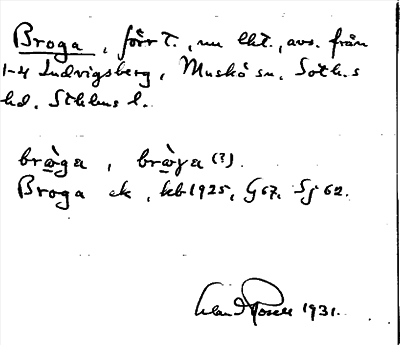 Broga, förr T., nu lht., avs. från
1-4 Ludvigsberg, Muskö sn. Soth.s
hd. Sthlms l.
brò̲ga, brò̲ɣa (?).
Broga ek, kb 1925, G67, Sj 62.
1931.